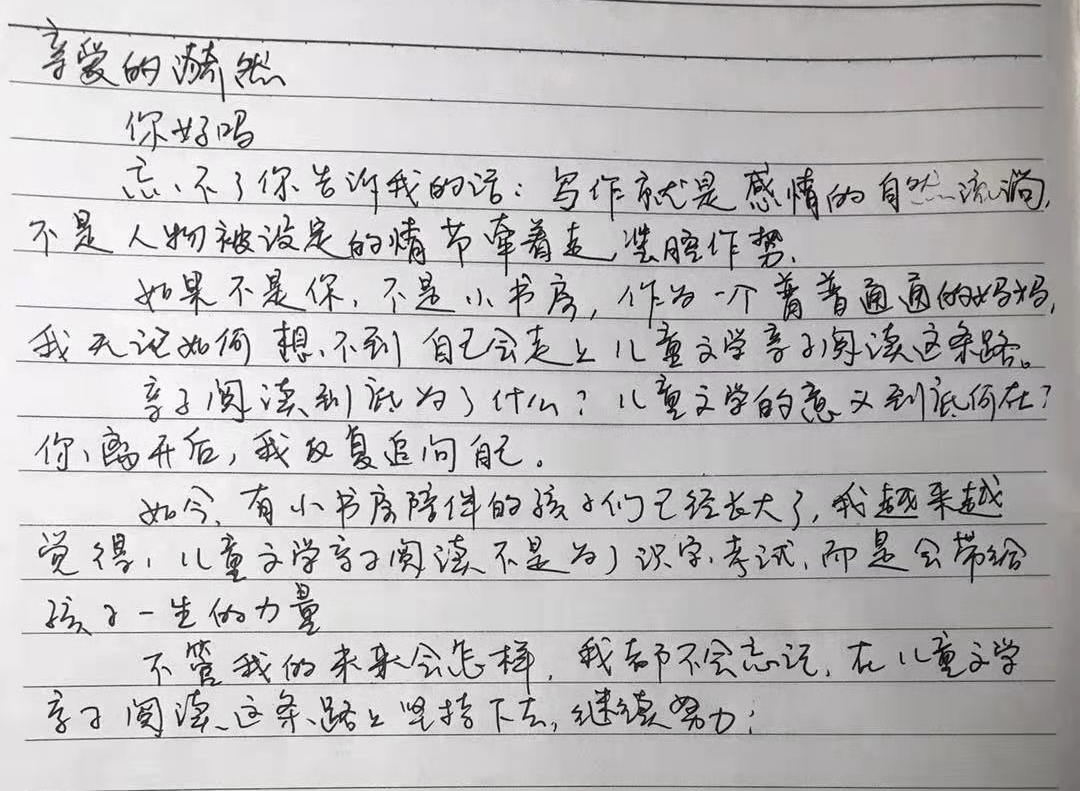 亲爱的漪然
你好吗
忘不了你告诉我的话：写作就是感情的自然流淌，
不是人物被设定的情节牵着走，装腔作势。
如果不是你，不是小书房，作为一个普普通通的妈妈，
我无论如何想不到自己会走上儿童文学亲子阅读这条路。
亲子阅读到底为了什么？儿童文学的意义到底何在？
你离开后，我反复追问自己。
如今，有小书房陪伴的孩子们已经长大了，我越来越
觉得，儿童文学亲子阅读不是为了识字、考试，而是会带给
孩子一生的力量
不管我的未来会怎样，我都不会忘记，在儿童文学
亲子阅读这条路上坚持下去，继续努力；